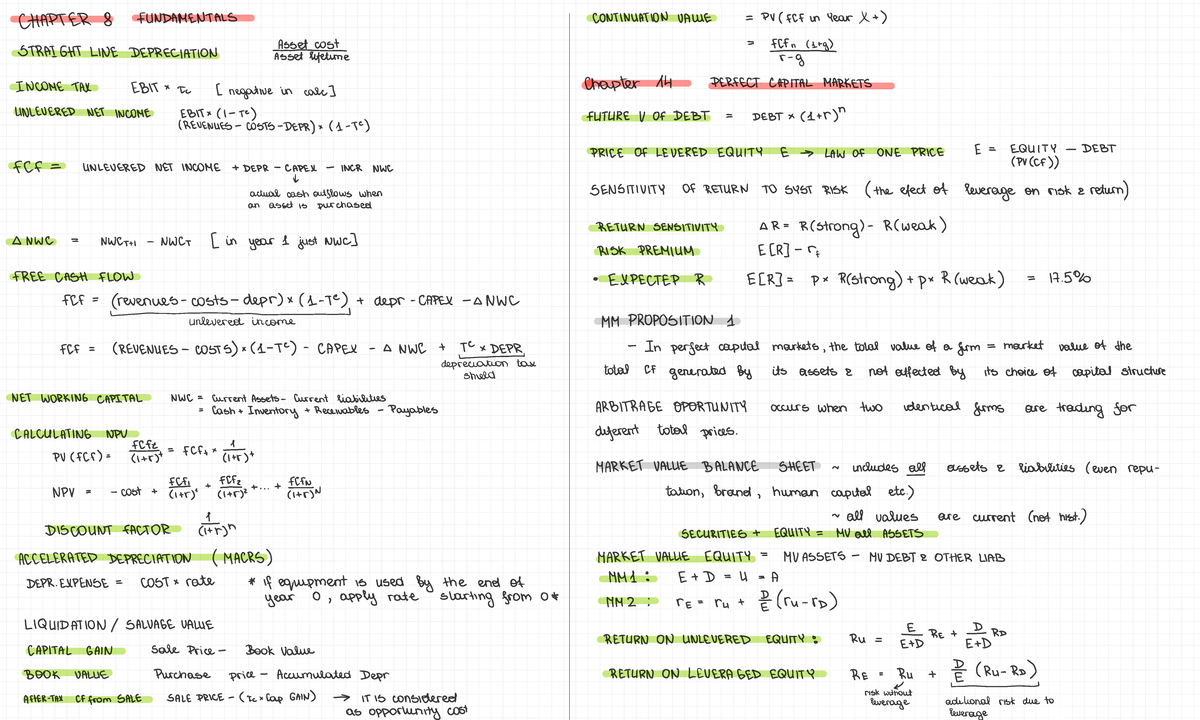 CHAPTER 8 FUNDAMENTALS
STRAIGHT LINE DEPRECIATION Asset cost / Asset lifetime
INCOME TAX EBIT × τc [negative in calc]
UNLEVERED NET INCOME EBIT × (1 - Tᶜ)
(REVENUES - COSTS - DEPR) × (1 - Tᶜ)
FCF = UNLEVERED NET INCOME + DEPR - CAPEX - INCR NWC
↓
actual cash outflows when
an asset is purchased
Δ NWC = NWC_T+1 - NWC_T [in year 1 just NWC]
FREE CASH FLOW
FCF = (revenues - costs - depr) × (1 - Tᶜ) + depr - CAPEX - Δ NWC
unlevered income
FCF = (REVENUES - COSTS) × (1 - Tᶜ) - CAPEX - Δ NWC + Tᶜ × DEPR
depreciation tax
shield
NET WORKING CAPITAL NWC = Current Assets - Current liabilities
= Cash + Inventory + Receivables - Payables
CALCULATING NPV
PV (FCF) = FCFt / (1+r)ᵗ = FCFt × 1 / (1+r)ᵗ
NPV = - cost + FCF1 / (1+r)¹ + FCF2 / (1+r)² + ... + FCFN / (1+r)ᴺ
DISCOUNT FACTOR 1 / (1+r)ⁿ
ACCELERATED DEPRECIATION (MACRS)
DEPR. EXPENSE = COST × rate * if equipment is used by the end of
year 0, apply rate starting from 0 *
LIQUIDATION / SALVAGE VALUE
CAPITAL GAIN Sale Price - Book Value
BOOK VALUE Purchase price - Accumulated Depr
AFTER-TAX CF from SALE SALE PRICE - (τc × Cap GAIN) → IT IS considered
as opportunity cost
CONTINUATION VALUE = PV (FCF in Year X+)
= FCFn (1+g) / r - g
Chapter 14 PERFECT CAPITAL MARKETS
FUTURE V OF DEBT = DEBT × (1+r)ⁿ
PRICE OF LEVERED EQUITY E → LAW OF ONE PRICE E = EQUITY - DEBT
(PV(CF))
SENSITIVITY OF RETURN TO SYST RISK (the efect of leverage on risk & return)
RETURN SENSITIVITY Δ R = R(strong) - R(weak)
RISK PREMIUM E[R] - rf
• EXPECTED R E[R] = p× R(strong) + p× R(weak) = 17.5%
MM PROPOSITION 1
- In perfect capital markets, the total value of a firm = market value of the
total CF generated by its assets & not affected by its choice of capital structure
ARBITRAGE OPORTUNITY occurs when two identical firms are trading for
diferent total prices.
MARKET VALUE BALANCE SHEET ~ includes all assets & liabilities (even repu-
tation, brand, human capital etc.)
~ all values are current (not hist.)
SECURITIES + EQUITY = MV all ASSETS
MARKET VALUE EQUITY = MV ASSETS - MV DEBT & OTHER LIAB
MM1: E + D = U = A
MM2: rE = ru + D/E (ru - rD)
RETURN ON UNLEVERED EQUITY: Ru = E / E+D RE + D / E+D RD
RETURN ON LEVERAGED EQUITY RE = Ru + D/E (Ru - RD)
risk without
leverage
aditional risk due to
leverage